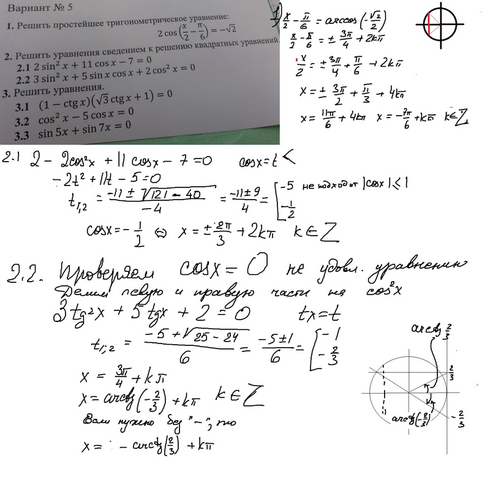 Вариант № 5
1. Решить простейшее тригонометрическое уравнение:
2 cos(x/2 − π/6) = −√2
2. Решить уравнения сведением к решению квадратных уравнений.
2.1 2 sin² x + 11 cos x − 7 = 0
2.2 3 sin² x + 5 sin x cos x + 2 cos² x = 0
3. Решить уравнения.
3.1 (1 − ctgx)(√3 ctgx + 1) = 0
3.2 cos² x − 5 cos x = 0
3.3 sin 5x + sin 7x = 0
1) x/2 − π/6 = arccos(−√2/2)
x/2 − π/6 = ± 3π/4 + 2kπ
x/2 = ± 3π/4 + π/6 + 2kπ
x = ± 3π/2 + π/3 + 4kπ
x = 11π/6 + 4kπ x = −7π/6 + kπ k∈Z
2.1 2 − 2cos²x + 11 cosx − 7 = 0 cosx = t
−2t² + 11t − 5 = 0
t1,2 = (−11 ± √(121 − 40))/−4 = (−11 ± 9)/4 = [−5 не подходит |cosx| ≤ 1
−1/2
cosx = −1/2 ⇔ x = ± 2π/3 + 2kπ k∈Z
2.2. Проверяем cosx = 0 не удовл. уравнению
Делим левую и правую части на cos²x
3tg²x + 5tgx + 2 = 0 tx = t
t1,2 = (−5 ± √(25 − 24))/6 = (−5 ± 1)/6 = [−1
−2/3
x = 3π/4 + kπ
x = arctg(−2/3) + kπ k∈Z
Если нужно без "−", то
x = − arctg(2/3) + kπ
arctg 2/3
2/3
−2/3
arctg(−2/3)